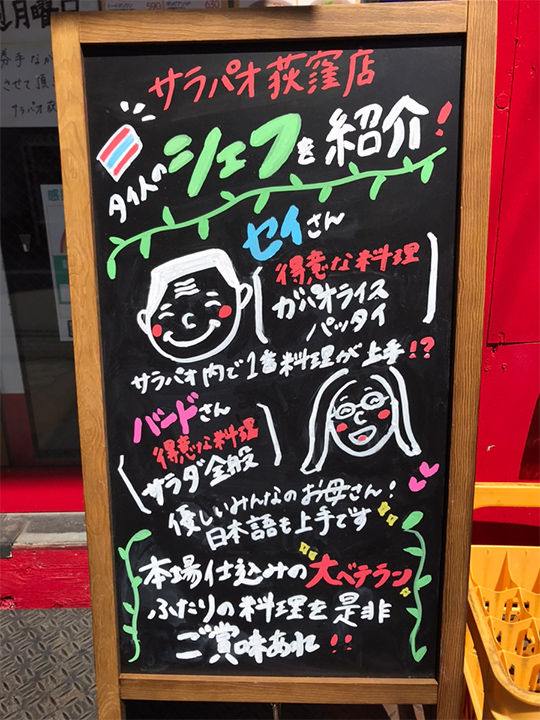 月曜日
590
630
サラパオ荻窪店
タイ人のシェフを紹介!
セイさん
得意な料理
ガパオライス
パッタイ
サラパオ内で1番料理が上手!?
バードさん
得意な料理
サラダ全般
優しいみんなのお母さん!
日本語も上手です
本場仕込みの大ベテラン
ふたりの料理を是非
ご賞味あれ!!